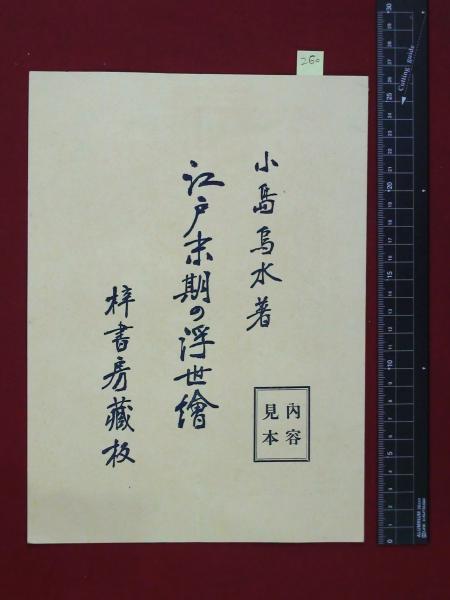 小島烏水著
江戸末期の浮世繪
梓書房藏板
內容
見本
260
30
25
20
10
5
0
Cutting guide